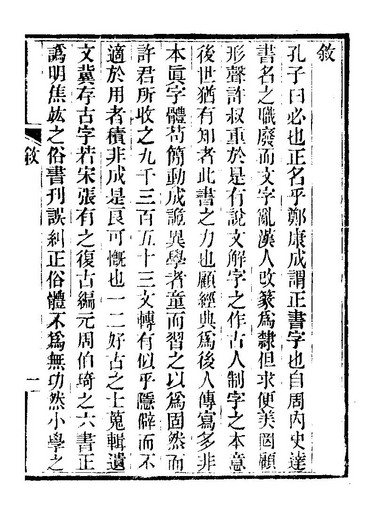 敘
孔子曰必也正名乎鄭康成謂正書字也自周內史達
書名之職廢而文字亂漢人改篆為隸但求便美罔顧
形聲許叔重於是有說文解字之作古人制字之本意
後世猶有知者此書之力也顧經典為後人傳寫多非
本眞字體苟簡動成詭異學者童而習之以為固然而
許君所收之九千三百五十三文轉有似乎隱僻而不
適於用者積非成是良可慨也一二好古之士蒐輯遺
文冀存古字若宋張有之復古編元周伯琦之六書正
譌明焦竑之俗書刊誤糾正俗體不為無功然小學之
敘
一